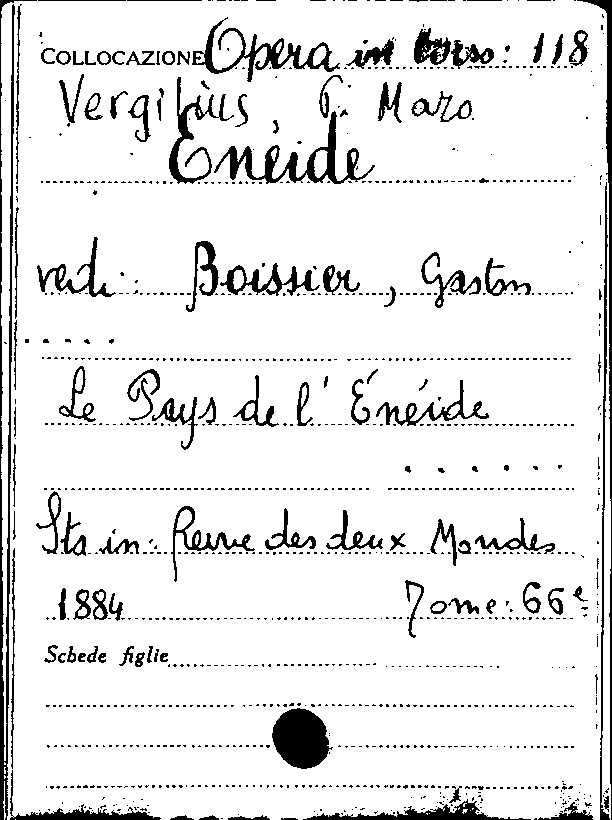 COLLOCAZIONE Opera in corso: 118
Vergilius, P. Maro
Enéide
vedi: Boissier, Gaston
.....
Le Pays de l'Énéide
......
Sta in: Revue des deux Mondes
1884 Tome: 66e
Schede figlie